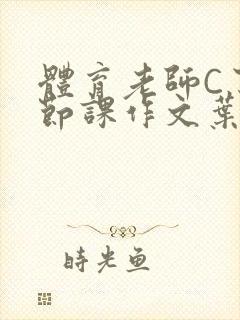 體育老師C
節課作文葉
時光魚